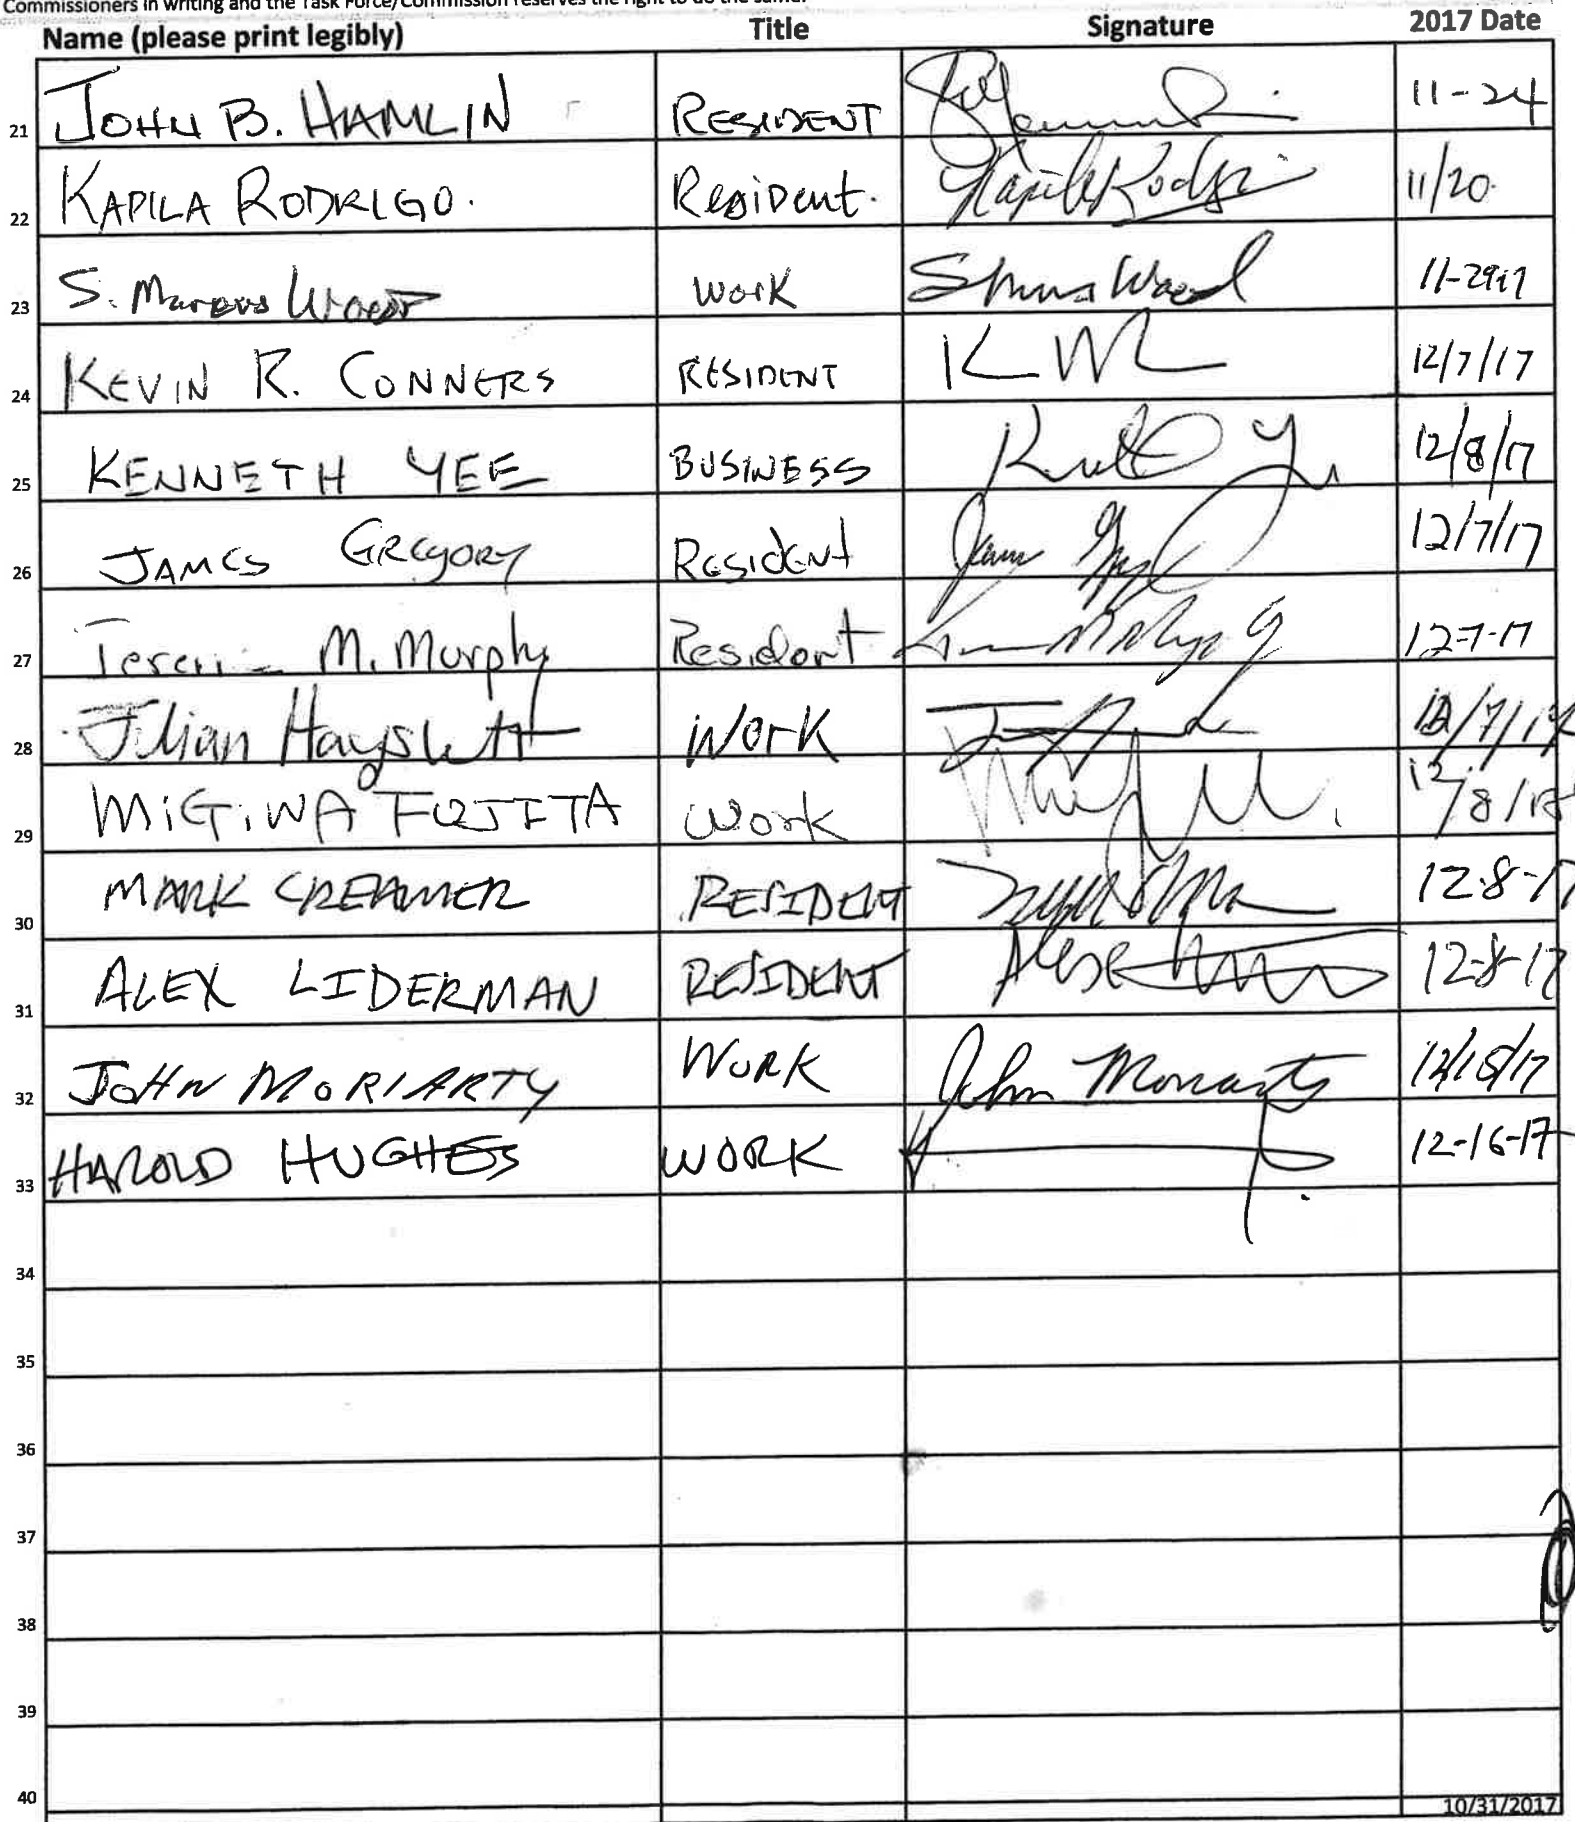 Commissioners in writing and the Task Force/Commission reserves the right to do the same.
Name (please print legibly) Title Signature 2017 Date
21 JOHN B. HAMLIN RESIDENT 11-24
22 KAPILA RODRIGO. Resident. Kapila Rodrigo 11/20
23 S. Marcus Work Wood 11-29-17
24 KEVIN R. CONNERS RESIDENT 12/7/17
25 KENNETH YEE BUSINESS 12/8/17
26 JAMES GREGORY Resident 12/7/17
27 M. Murphy Resident 12-7-17
28 Jilian Hayslett Work 12/7/17
29 MiGiWA FUJITA Work 12/8/
30 MARK CREAMER RESIDENT 12-8-17
31 ALEX LIDERMAN RESIDENT 12-8-17
32 JOHN MORIARTY WORK John Moriarty 12/15/17
33 HAROLD HUGHES WORK 12-16-17
34
35
36
37
38
39
40
10/31/2017